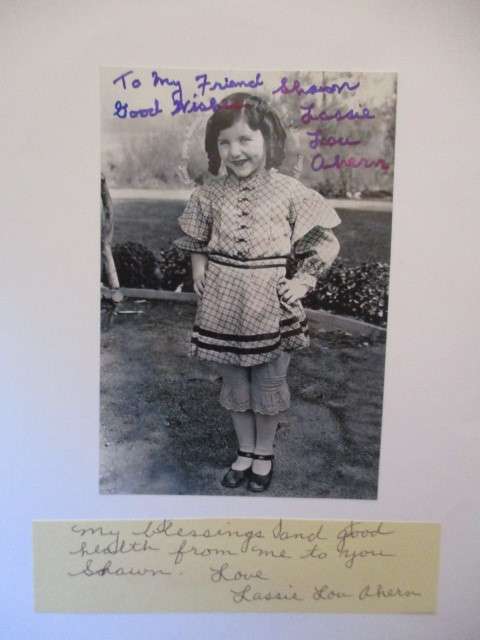 To My Friend Shawn
Good Wishes
Lassie
Lou
Ahern
My blessings and good
health from me to you
Shawn. Love
Lassie Lou Ahern